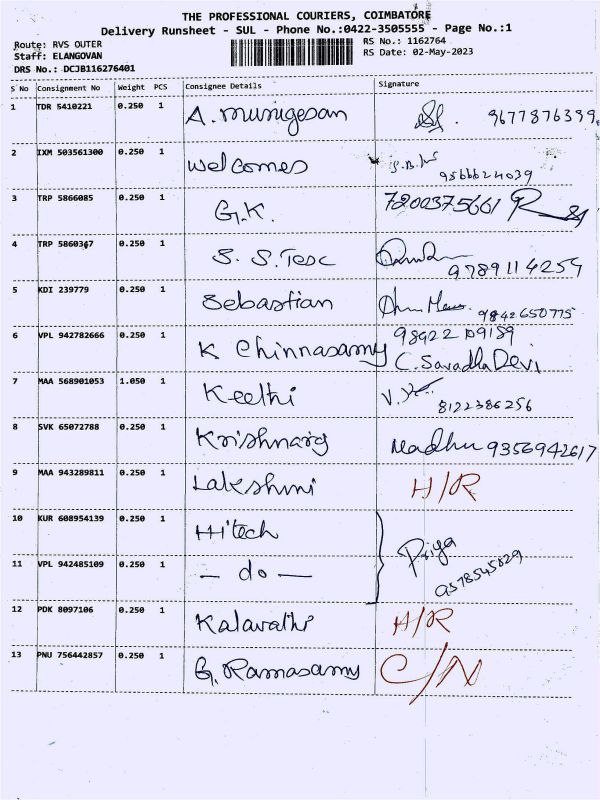 THE PROFESSIONAL COURIERS, COIMBATORE
Delivery Runsheet - SUL - Phone No.:0422-3505555 - Page No.:1
Route: RVS OUTER
RS No.: 1162764
Staff: ELANGOVAN
RS Date: 02-May-2023
DRS No.: DCJB116276401
S No Consignment No Weight PCS Consignee Details Signature
1 TDR 5410221 0.250 1 A. Murugesan 9677876399
2 IXM 503561300 0.250 1 Welcomes
9566624039
3 TRP 5866085 0.250 1 G.K. 7200375661
4 TRP 5860347 0.250 1 S. S. Tesc
9789114254
5 KDI 239779 0.250 1 Sebastian 9842650775
6 VPL 942782666 0.250 1 K Chinnasamy
C. Savadha Devi
7 MAA 568901053 1.050 1 Keethi 8122386256
8 SVK 65072788 0.250 1 Krishnarg Madhu 9356942617
9 MAA 943289811 0.250 1 Lakshmi H/R
10 KUR 608954139 0.250 1 Hi'tech Priya
11 VPL 942485109 0.250 1 — do — 9578545829
12 PDK 8097106 0.250 1 Kalavathi H/R
13 PNU 756442857 0.250 1 G. Ramasamy C/N